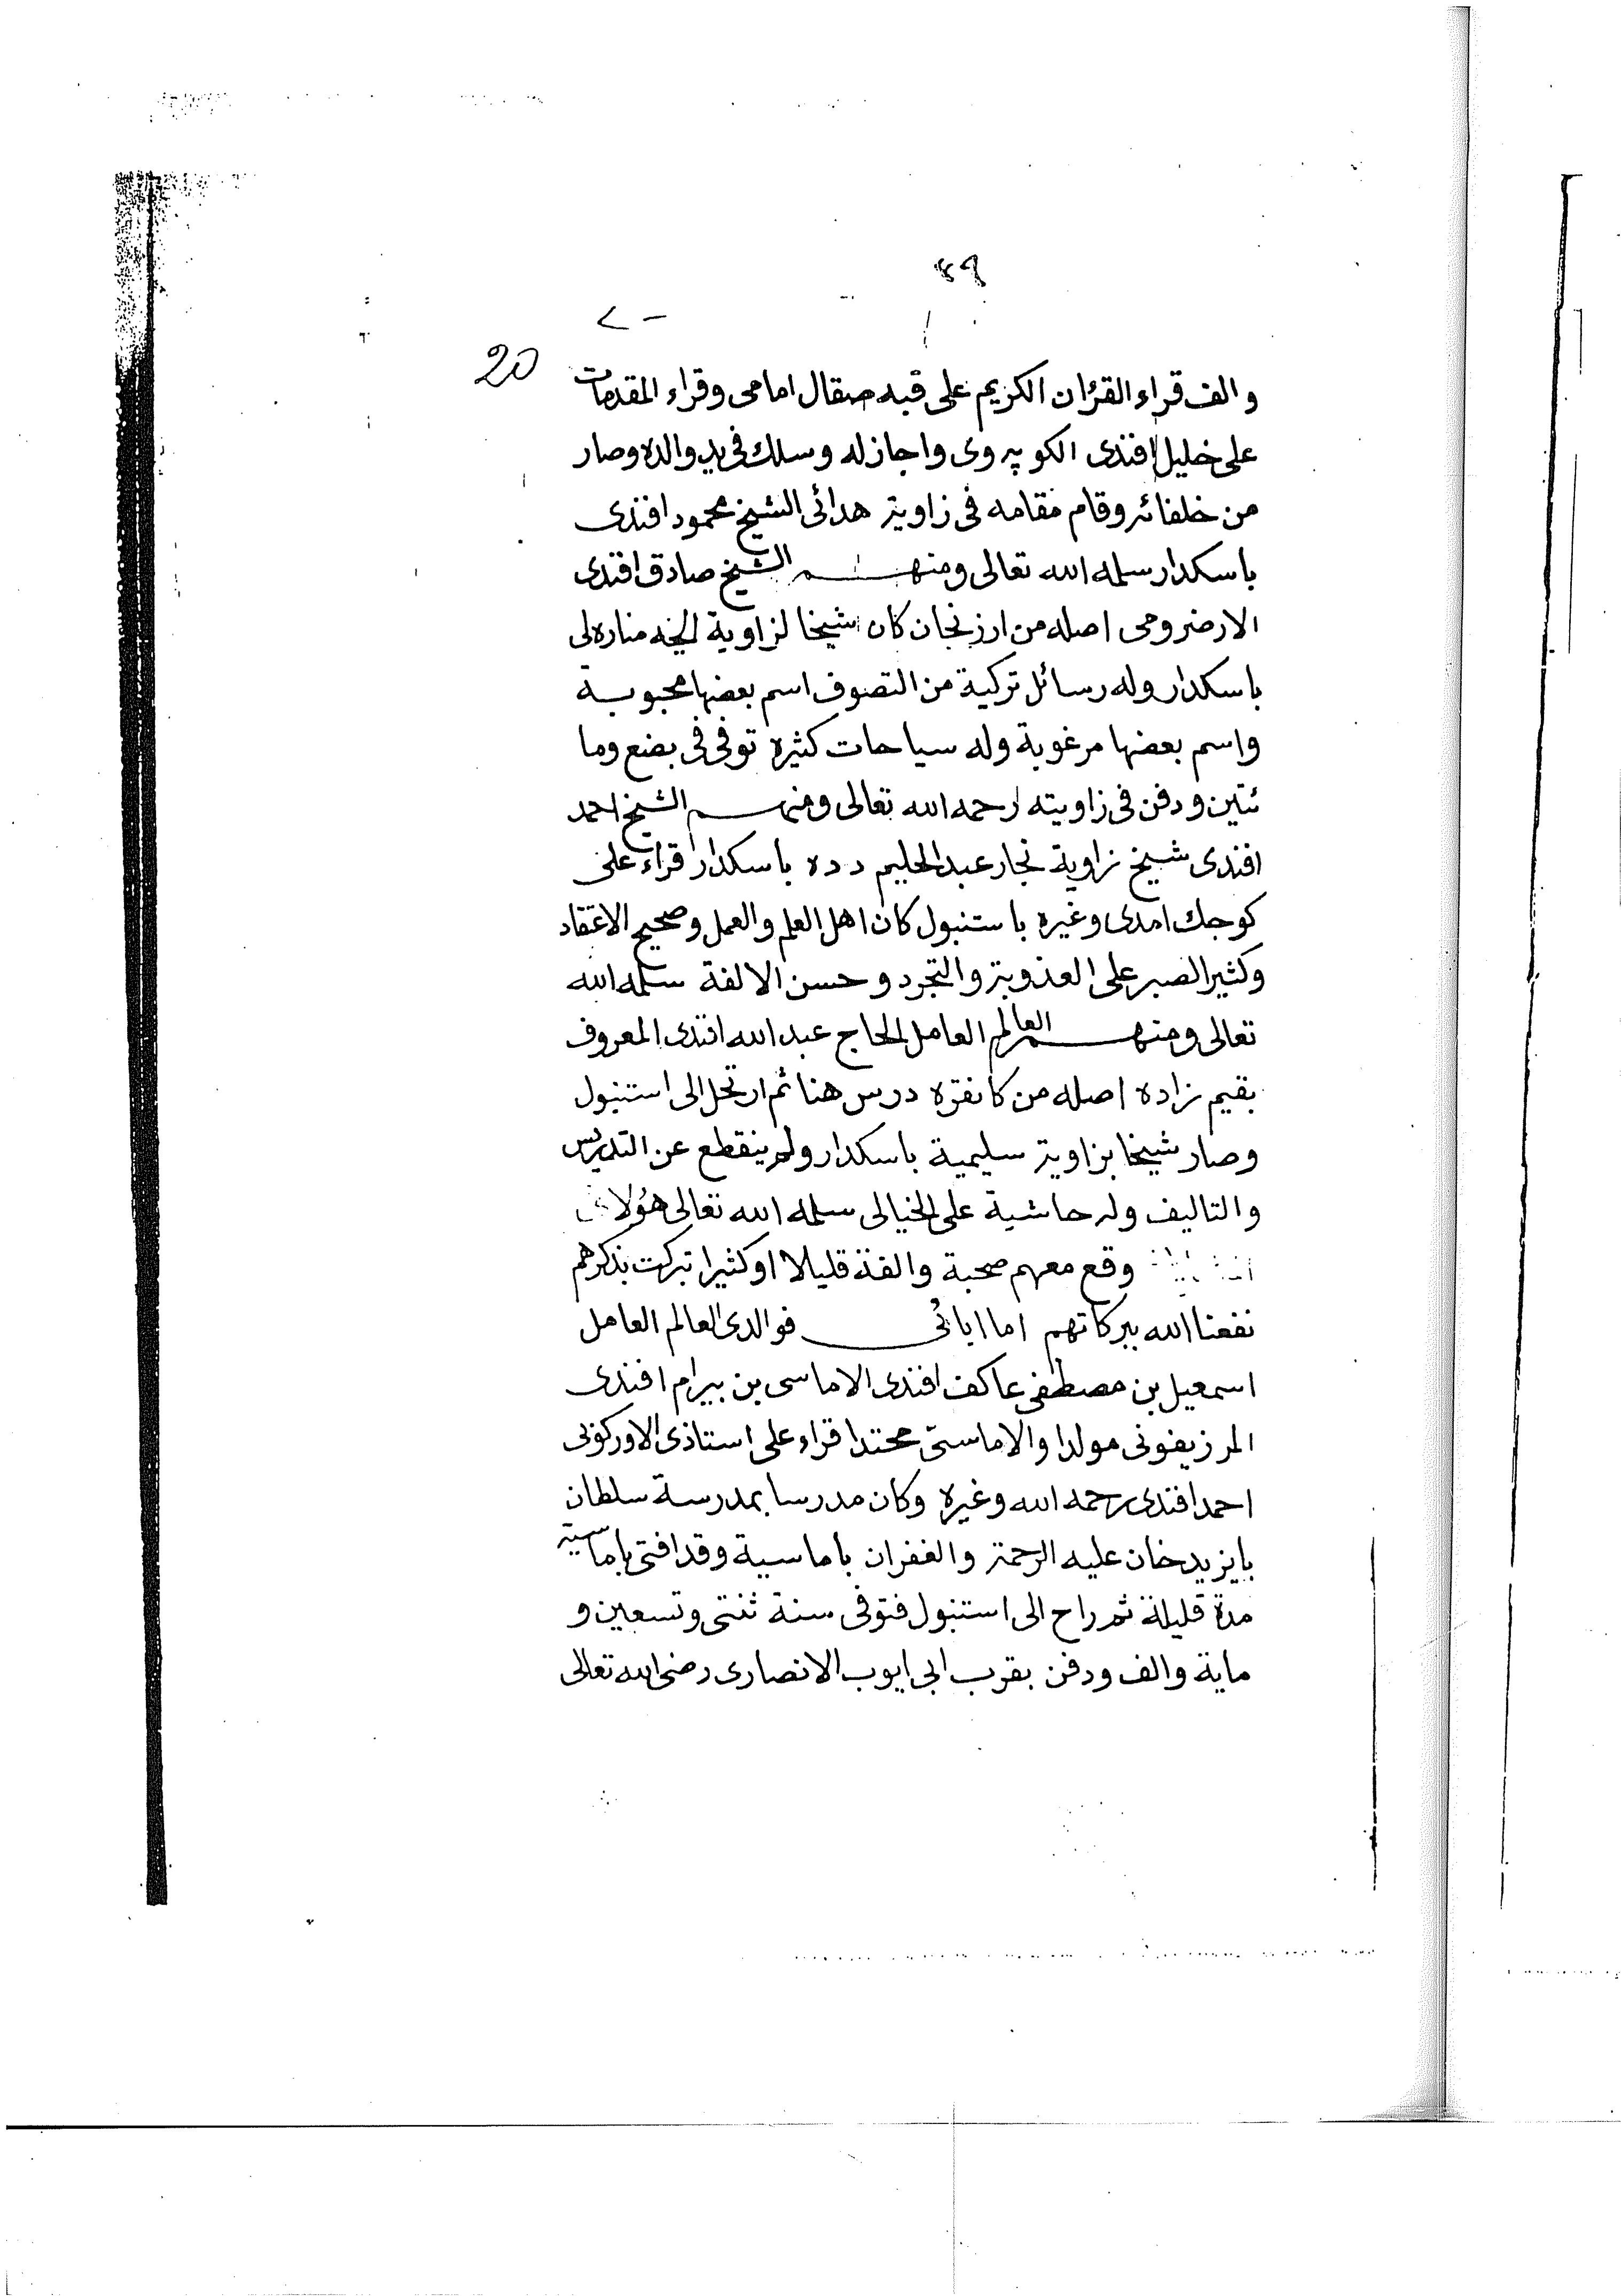 ٤٩
20
والف قراء القرٔان الكريم على قبه صقال امامى وقراء المقدمات
على خليل افندى الكوپروى واجاز له وسلك فى يد والده وصار
من خلفائه وقام مقامه فى زاوية هدائى الشيخ محمود افندى
باسكدار سلمه الله تعالى ومنهم الشيخ صادق افندى
الارضرومى اصله من ارزنجان كان شيخا لزاوية الچه مناره لى
باسكدار وله رسائل تركية من التصوف اسم بعضها محبوبة
واسم بعضها مرغوبة وله سياحات كثيره توفى فى بضع وما
ئتين ودفن فى زاويته رحمه الله تعالى ومنهم الشيخ احمد
افندى شيخ زاوية نجار عبد الحليم دده باسكدار قراء على
كوجك امدى وغيره باستنبول كان اهل العلم والعمل وصحيح الاعتقاد
وكثير الصبر على العذوبة والتجرد وحسن الالفة سلمه الله
تعالى ومنهم العالم العامل الحاج عبد الله افندى المعروف
بقيم زاده اصله من كانقره درس هنا ثم ارتحل الى استنبول
وصار شيخا بزاوية سليمية باسكدار ولم ينقطع عن التدريس
والتاليف وله حاشية على الخيالى سلمه الله تعالى هؤلاى
وقع معهم صحبة والفة قليلا او كثيرا تبركت بذكرهم
نفعنا الله ببركاتهم اما ابائى فوالدى العالم العامل
اسمعيل بن مصطفى عاكف افندى الاماسى بن بيرام افندى
المرزيفونى مولدا والاماسىّ محتدا قراء على استاذى الاوركوبى
احمد افندى رحمه الله وغيره وكان مدرسا بمدرسة سلطان
بايزيد خان عليه الرحمة والغفران باماسية وقد افتى باماسية
مدة قليلة ثم راح الى استنبول فتوفى سنة ثنتى وتسعين و
ماية والف ودفن بقرب ابى ايوب الانصارى رضى الله تعالى